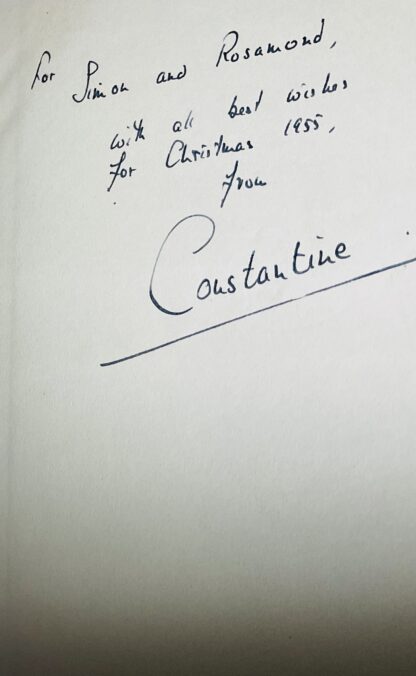 For Simon and Rosamond,
with all best wishes
for Christmas 1955,
from
Constantine